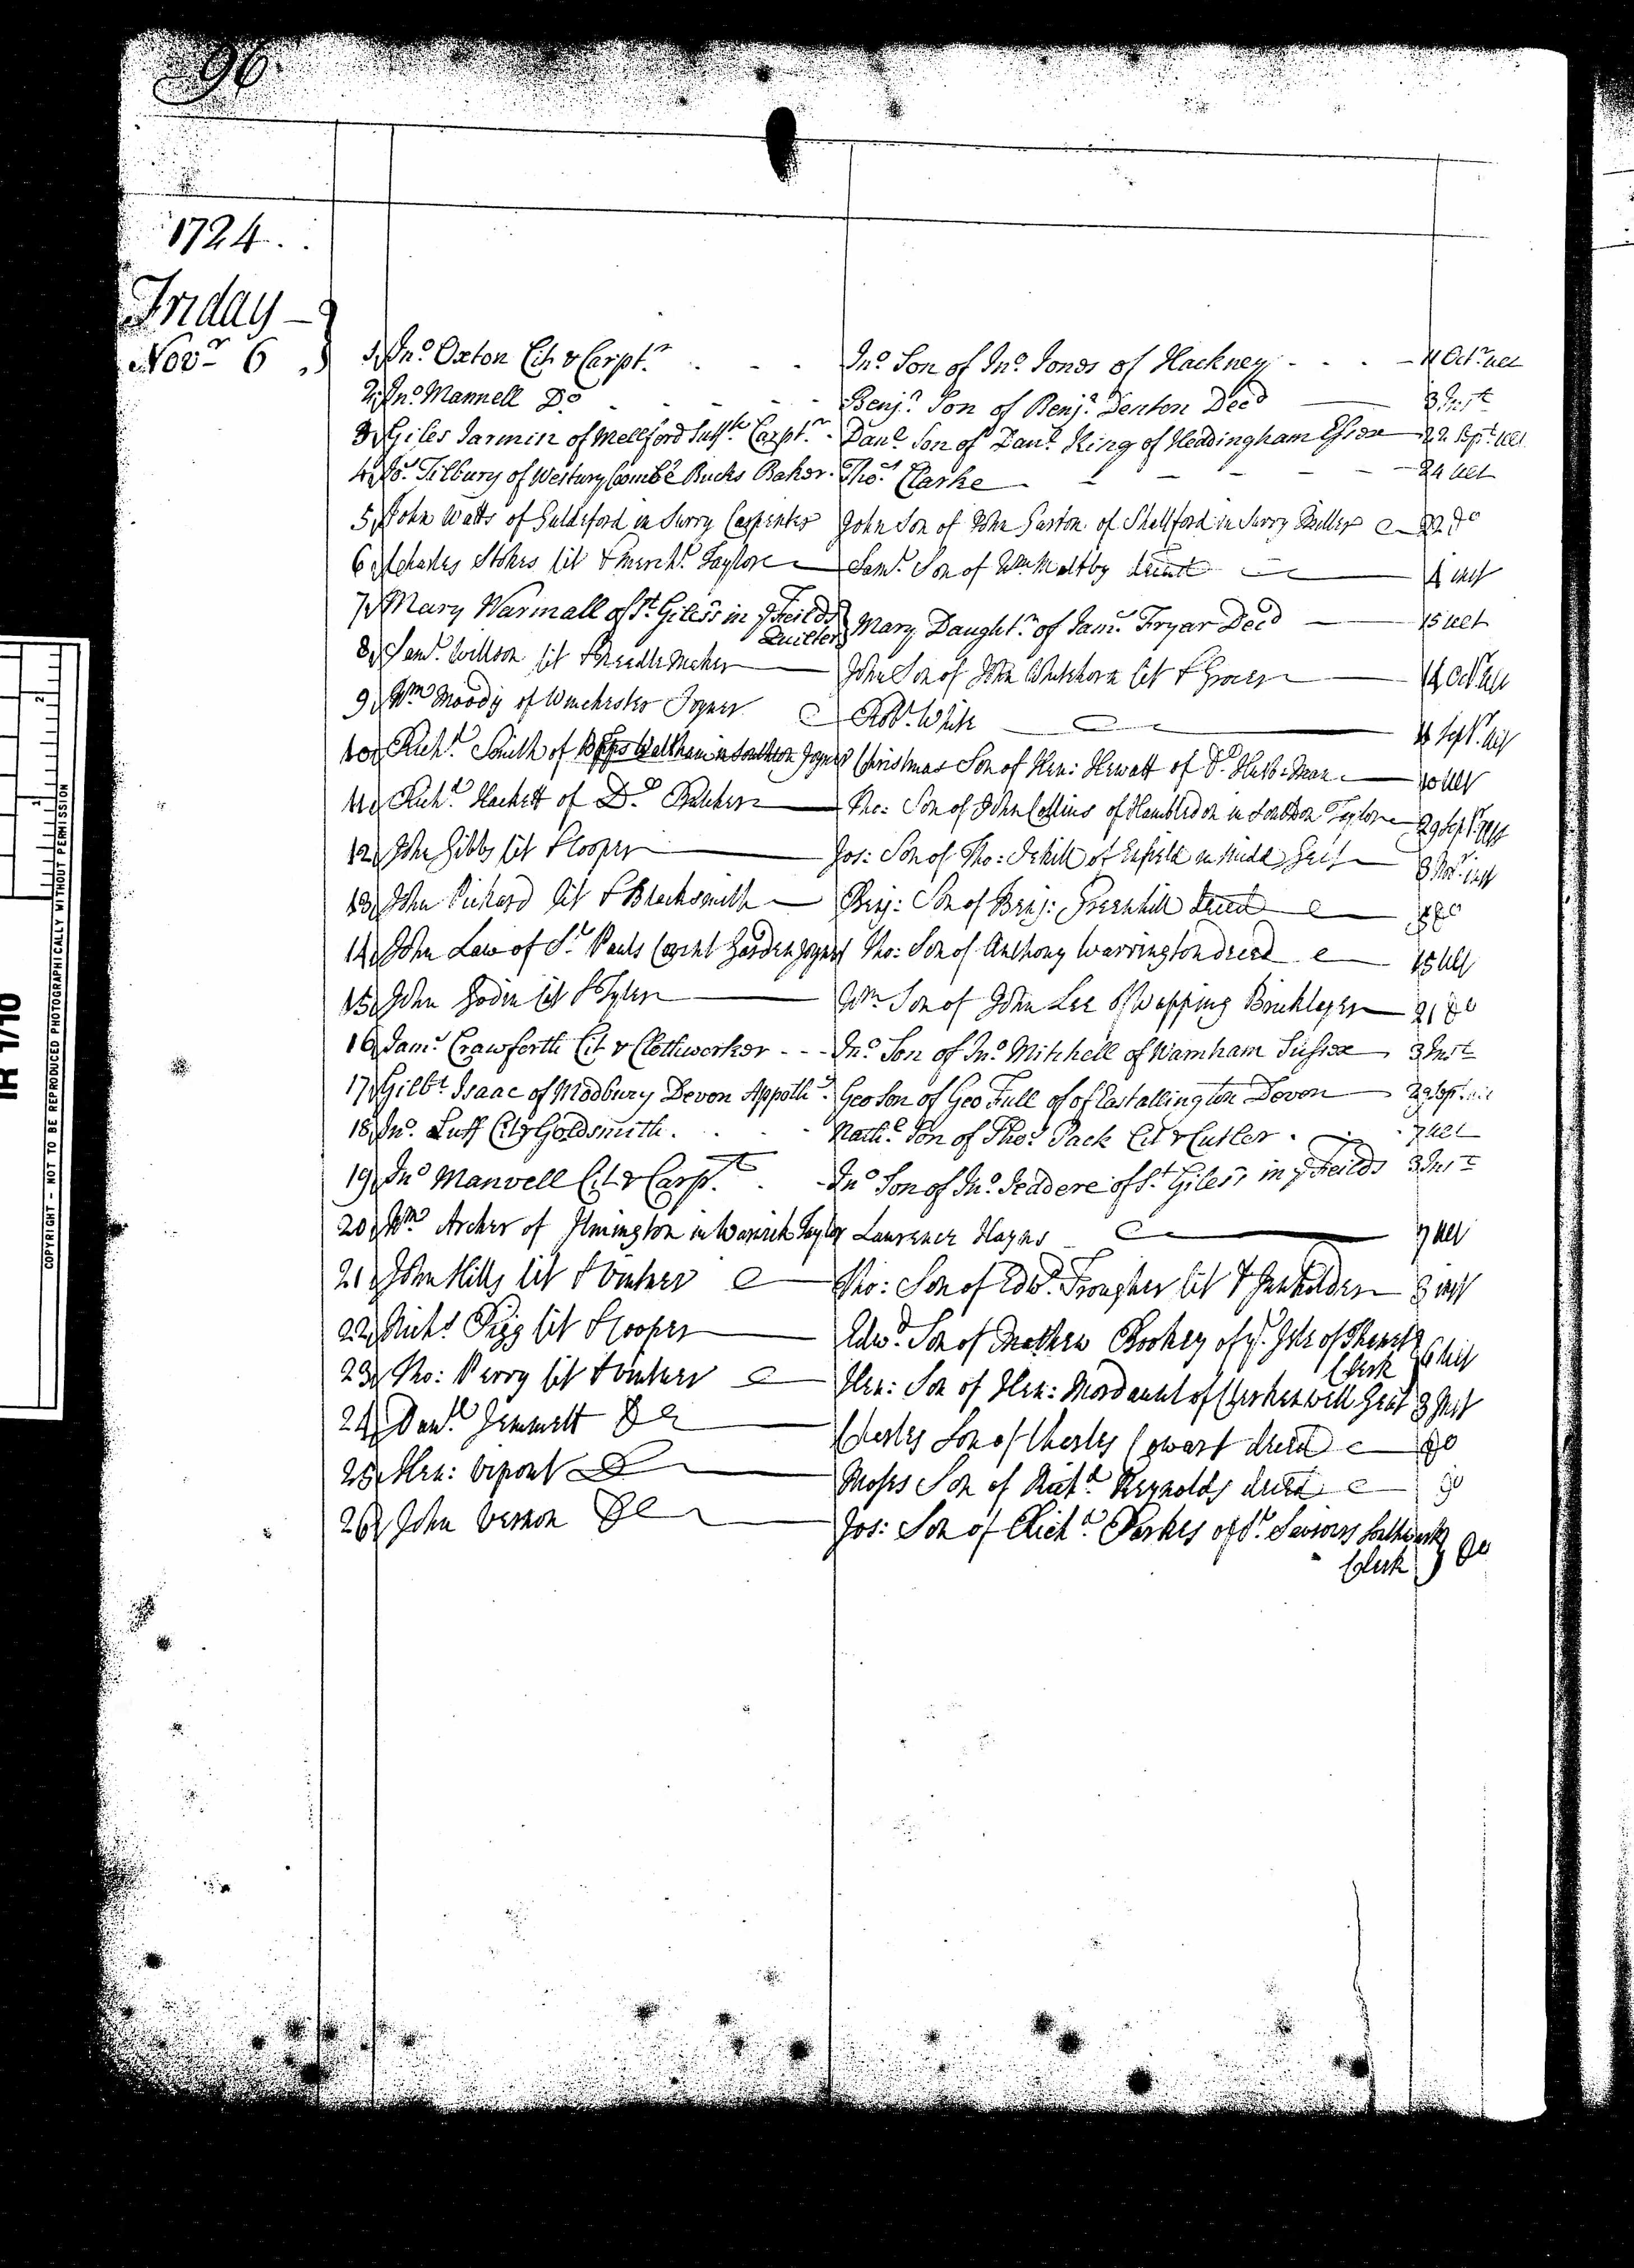 96
1724
Friday
Novr 6
1 Jno. Oxton Cit & Carptr. Jno. Son of Jno. Jones of Hackney 11 Octr. ult
2 Jno. Mannell Do. Benja. Son of Benja. Denton Decd 3 Inst
3 Giles Jarmin of Mellford Suffk. Carptr. Danl. Son of Danl. King of Heddingham Essex 22 Sept. ult
4 Jos. Tilbury of Westury Coombe Bucks Baker. Thos. Clarke 24 ult
5 John Watts of Guldeford in Surry Carpenter John Son of John Garton of Shellford in Surry Miller 22 Do
6 Charles Stokes Cit & Mercht. Taylor Saml. Son of Wm. Maltby deced 4 inst
7 Mary Warmall of St. Giles's in ye Feilds Quilter Mary Daughtr. of Jams. Fryar Decd 15 ult
8 Saml. Willson Cit & Needlemaker John Son of John Whitehorn Cit & Grocer 14 Octr. ult
9 Wm. Moody of Winchester Joyner Robt. White Sept. ult
10 Richd. Smith of Bpps Waltham in Southton Joyner Christmas Son of Hen: Hewatt of Do. Husb:man 10 ult
11 Richd. Hackett of Do. Butcher Tho: Son of John Collins of Hambledon in Southton Taylor 29 Sept. past
12 John Gibbs Cit & Cooper Jos: Son of Tho: of Enfield in Midd Gent 3 Novr. inst
13 John Pickard Cit & Blacksmith Benj: Son of Benj: Greenhill decd Do
14 John Law of St. Pauls Covent Garden Joyner Tho: Son of Anthony Warrington decd 15 ult
15 John Godin Cit & Tyler Wm Son of John Lee of Wapping Bricklayer 21 Do
16 Jams. Crawforth Cit & Clothworker Jno. Son of Jno. Mitchell of Warnham Sussex 3 Inst
17 Gilbt. Isaac of Modbury Devon Appothy. Geo Son of Geo Full of of East allington Devon 29 Sept. ult
18 Jno. Luff Cit & Goldsmith. Nathl. Son of Thos. Pack Cit & Cutler 7 ult
19 Jno Manvell Cit & Carpt. Jno Son of Jno. Jeddere of St. Giles's in ye Feilds 3 Inst
20 Wm Archer of Ilmington in Warwick Taylor Laurence Haynes 7 ult
21 John Hills Cit & Vintner Tho: Son of Edwd. Trougher Cit & Inholder 3 inst
22 Richd Pigg Cit & Cooper Edwd. Son of Mathew Bookey of ye. Isle of Thanett
Clerk 6 inst
23 Tho: Perry Cit & Vintner Hen: Son of Hen: Mordaunt of Clerkenwell Gent 3 Inst
24 Danll. Jemmett Do Charles Son of Charles Cowart decd Do
25 Hen: Vipont Do Moses Son of Richd. Reynolds decd Do
26 John Vernon Do Jos: Son of Richd. Parkes of St. Saviours Southwark
Clerk Do
COPYRIGHT - NOT TO BE REPRODUCED PHOTOGRAPHICALLY WITHOUT PERMISSION
IR 1/10
1
2